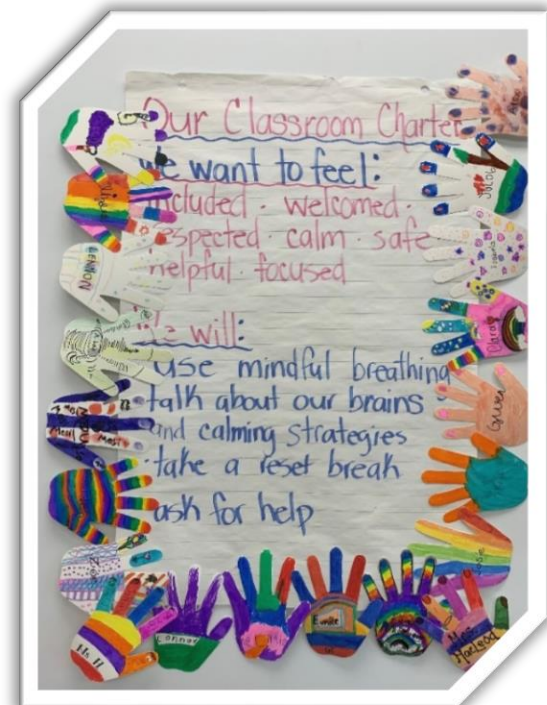 Our Classroom Charter
we want to feel:
included · welcomed ·
respected · calm · safe
helpful · focused
We will:
use mindful breathing
talk about our brains
and calming strategies
take a reset break
ask for help
LENNON
JACOB
Connor
Ms. H
Mrs.
MacLeod